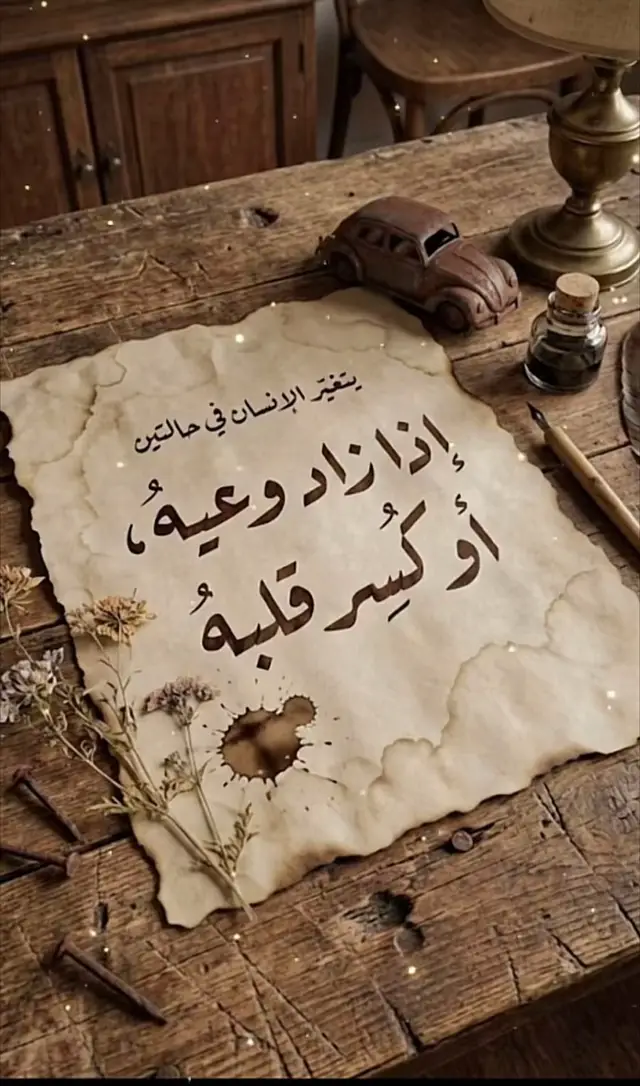 يتغيّر الإنسان في حالتين
إذا زاد وعيهُ،
أو كُسِر قلبهُ